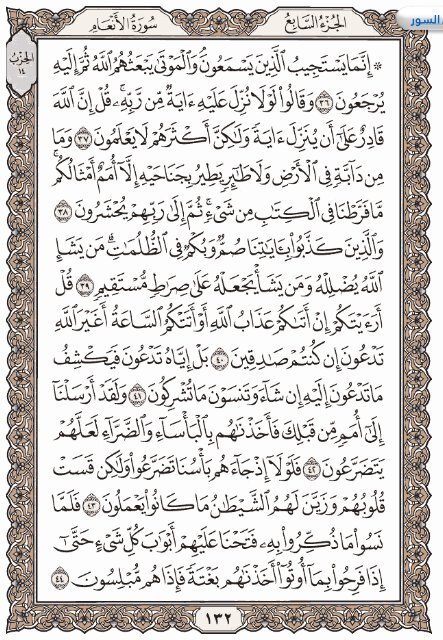 السور
الجزء السابع
سورة الأنعام
الحزب ١٤
۞ إِنَّمَا يَسْتَجِيبُ الَّذِينَ يَسْمَعُونَ ۘ وَالْمَوْتَىٰ يَبْعَثُهُمُ اللَّهُ ثُمَّ إِلَيْهِ
يُرْجَعُونَ ٣٦ وَقَالُوا لَوْلَا نُزِّلَ عَلَيْهِ ءَايَةٌ مِّن رَّبِّهِ ۚ قُلْ إِنَّ اللَّهَ
قَادِرٌ عَلَىٰ أَن يُنَزِّلَ ءَايَةً وَلَٰكِنَّ أَكْثَرَهُمْ لَا يَعْلَمُونَ ٣٧ وَمَا
مِن دَابَّةٍ فِي الْأَرْضِ وَلَا طَائِرٍ يَطِيرُ بِجَنَاحَيْهِ إِلَّا أُمَمٌ أَمْثَالُكُم ۚ
مَّا فَرَّطْنَا فِي الْكِتَابِ مِن شَيْءٍ ۚ ثُمَّ إِلَىٰ رَبِّهِمْ يُحْشَرُونَ ٣٨
وَالَّذِينَ كَذَّبُوا بِـَٔايَاتِنَا صُمٌّ وَبُكْمٌ فِي الظُّلُمَاتِ ۗ مَن يَشَإِ
اللَّهُ يُضْلِلْهُ وَمَن يَشَأْ يَجْعَلْهُ عَلَىٰ صِرَاطٍ مُّسْتَقِيمٍ ٣٩ قُلْ
أَرَءَيْتَكُمْ إِنْ أَتَىٰكُمْ عَذَابُ اللَّهِ أَوْ أَتَتْكُمُ السَّاعَةُ أَغَيْرَ اللَّهِ
تَدْعُونَ إِن كُنتُمْ صَادِقِينَ ٤٠ بَلْ إِيَّاهُ تَدْعُونَ فَيَكْشِفُ
مَا تَدْعُونَ إِلَيْهِ إِن شَاءَ وَتَنسَوْنَ مَا تُشْرِكُونَ ٤١ وَلَقَدْ أَرْسَلْنَا
إِلَىٰ أُمَمٍ مِّن قَبْلِكَ فَأَخَذْنَاهُم بِالْبَأْسَاءِ وَالضَّرَّاءِ لَعَلَّهُمْ
يَتَضَرَّعُونَ ٤٢ فَلَوْلَا إِذْ جَاءَهُم بَأْسُنَا تَضَرَّعُوا وَلَٰكِن قَسَتْ
قُلُوبُهُمْ وَزَيَّنَ لَهُمُ الشَّيْطَانُ مَا كَانُوا يَعْمَلُونَ ٤٣ فَلَمَّا
نَسُوا مَا ذُكِّرُوا بِهِ فَتَحْنَا عَلَيْهِمْ أَبْوَابَ كُلِّ شَيْءٍ حَتَّىٰ
إِذَا فَرِحُوا بِمَا أُوتُوا أَخَذْنَاهُم بَغْتَةً فَإِذَا هُم مُّبْلِسُونَ ٤٤
١٣٢